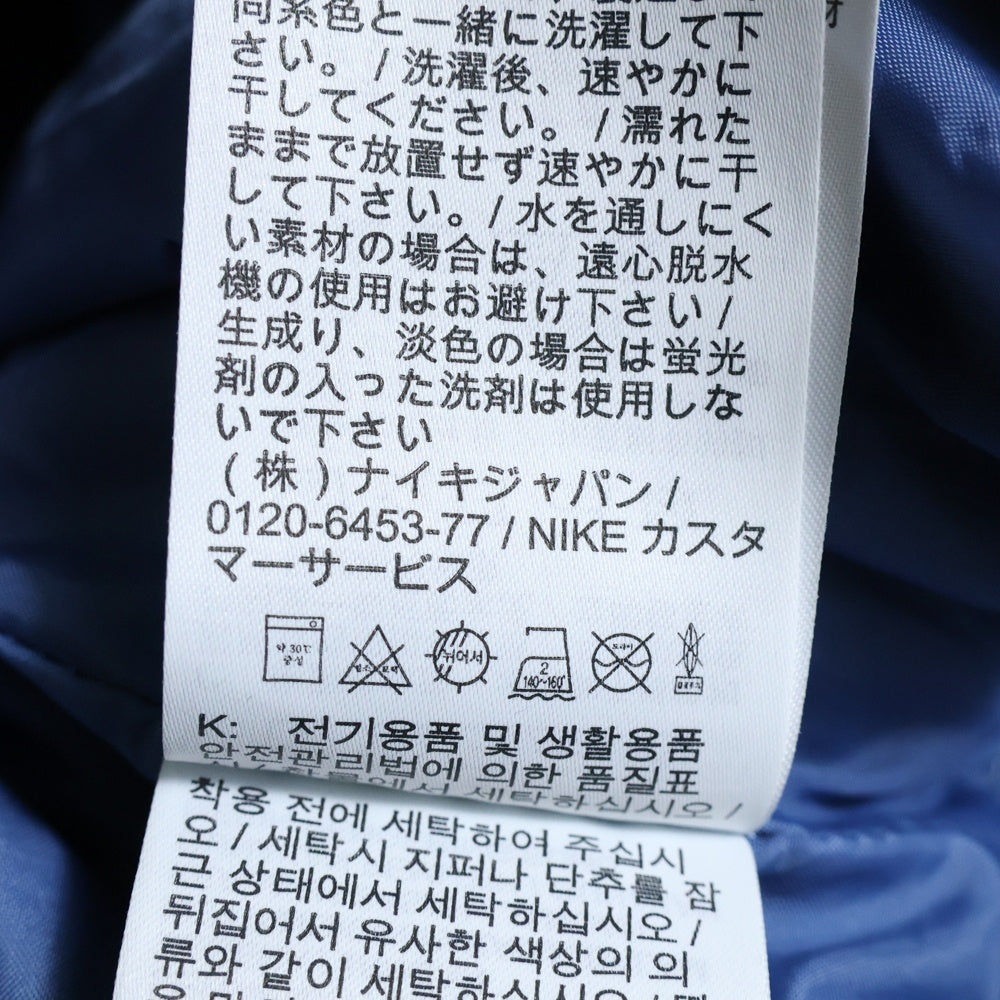 同系色と一緒に洗濯して下
さい。 / 洗濯後、速やかに
干してください。 / 濡れた
ままで放置せず速やかに干
して下さい。/ 水を通しにく
い素材の場合は、遠心脱水
機の使用はお避け下さい /
生成り、淡色の場合は蛍光
剤の入った洗剤は使用しな
いで下さい
(株)ナイキジャパン /
0120-6453-77 / NIKE カスタ
マーサービス
약 30℃ 중성
뉘어서
2 140~160°
드라이
K: 전기용품 및 생활용품
안전관리법에 의한 품질표
착용 전에 세탁하여 주십시
오 / 세탁시 지퍼나 단추를 잠
근 상태에서 세탁하십시오 /
뒤집어서 유사한 색상의 의
류와 같이 세탁하십시오 /